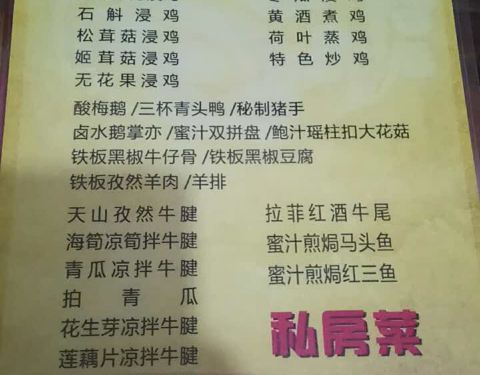 石斛浸鸡
黄酒煮鸡
松茸菇浸鸡
荷叶蒸鸡
姬茸菇浸鸡
特色炒鸡
无花果浸鸡
酸梅鹅/三杯青头鸭/秘制猪手
卤水鹅掌亦/蜜汁双拼盘/鲍汁瑶柱扣大花菇
铁板黑椒牛仔骨/铁板黑椒豆腐
铁板孜然羊肉/羊排
天山孜然牛腱
拉菲红酒牛尾
海筍凉筍拌牛腱
蜜汁煎焗马头鱼
青瓜凉拌牛腱
蜜汁煎焗红三鱼
拍青瓜
花生芽凉拌牛腱
莲藕片凉拌牛腱
私房菜